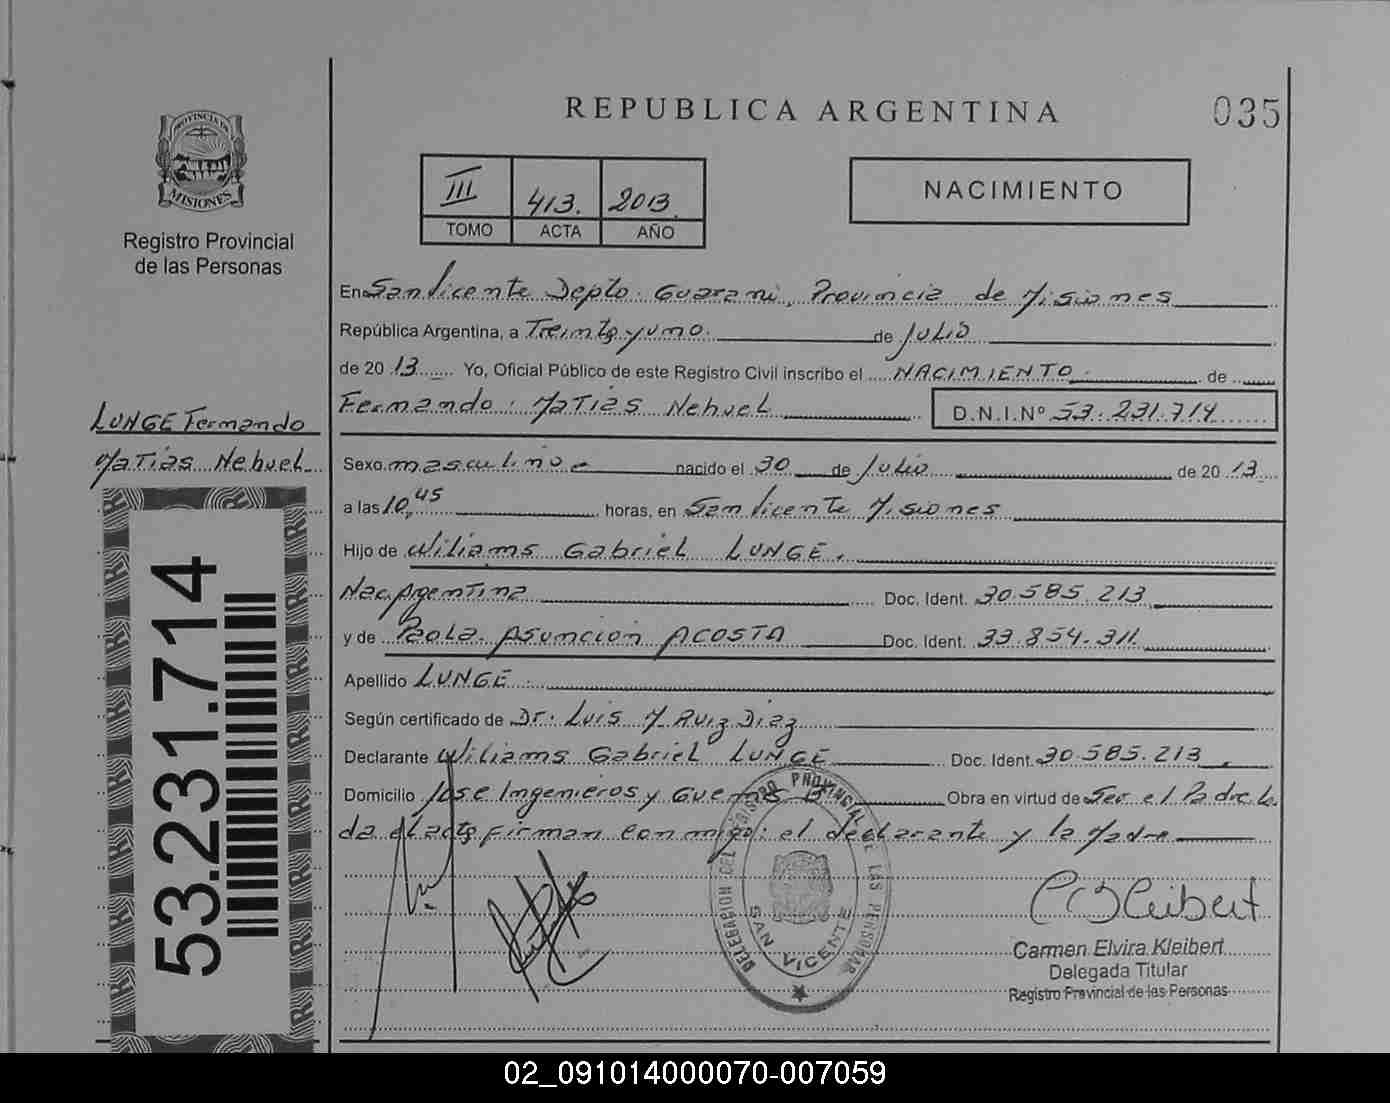 REPUBLICA ARGENTINA
035
PROVINCIA DE
MISIONES
Registro Provincial
de las Personas
III 413. 2013.
TOMO ACTA AÑO
NACIMIENTO
En San Vicente Depto. Guarani, Provincia de Misiones
República Argentina, a Treinta y uno. de Julio
de 2013 Yo, Oficial Público de este Registro Civil inscribo el NACIMIENTO. de
Fernando. Matias Nehuel D.N.I.Nº 53.231.714
LUNGE Fernando
Matias Nehuel
53.231.714
Sexo masculino nacido el 30 de Julio de 2013
a las 10,45 horas, en San Vicente Misiones
Hijo de Wiliams Gabriel LUNGE.
Nac. Argentina Doc. Ident. 30.585.213
y de Paola Asuncion ACOSTA Doc. Ident. 33.854.311
Apellido LUNGE.
Según certificado de Dr. Luis M Ruiz Diaz
Declarante Wiliams Gabriel LUNGE Doc. Ident. 30.585.213
Domicilio Jose Ingenieros y Obra en virtud de Ser el Padre Lei
da el acta firman conmigo: el declarante y la Madre
DELEGACION DEL REGISTRO PROVINCIAL DE LAS PERSONAS
SAN VICENTE
Kleibert
Carmen Elvira Kleibert
Delegada Titular
Registro Provincial de las Personas
02_091014000070-007059